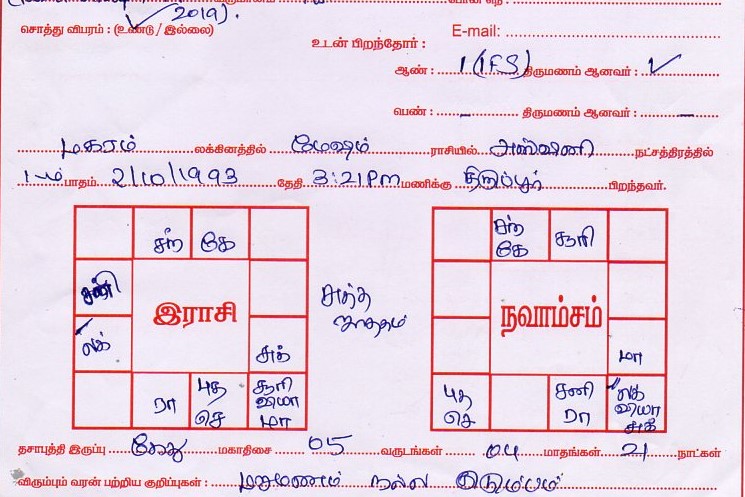 2019).
சொத்து விபரம் : (உண்டு / இல்லை)
E-mail:
உடன் பிறந்தோர் :
ஆண் : 1 (IFS) திருமணம் ஆனவர் : ✓
பெண் : – திருமணம் ஆனவர் : –
மகரம் லக்கினத்தில் மேஷம் ராசியில் அஸ்வினி நட்சத்திரத்தில்
1ம் பாதம் 2/10/1993 தேதி 3:21 Pm மணிக்கு திருப்பூர் பிறந்தவர்.
சந் கே
சனி
லக்
சுக்
ரா
புத செ
சூரி வியா மா
இராசி
சுத்த ஜாதகம்
சந் கே
சூரி
மா
புத செ
சனி ரா
லக் வியா சுக்
நவாம்சம்
தசாபுத்தி இருப்பு கேது மகாதிசை 05 வருடங்கள் 04 மாதங்கள் 21 நாட்கள்
விரும்பும் வரன் பற்றிய குறிப்புகள் : மறுமணம் நல்ல குடும்பம்